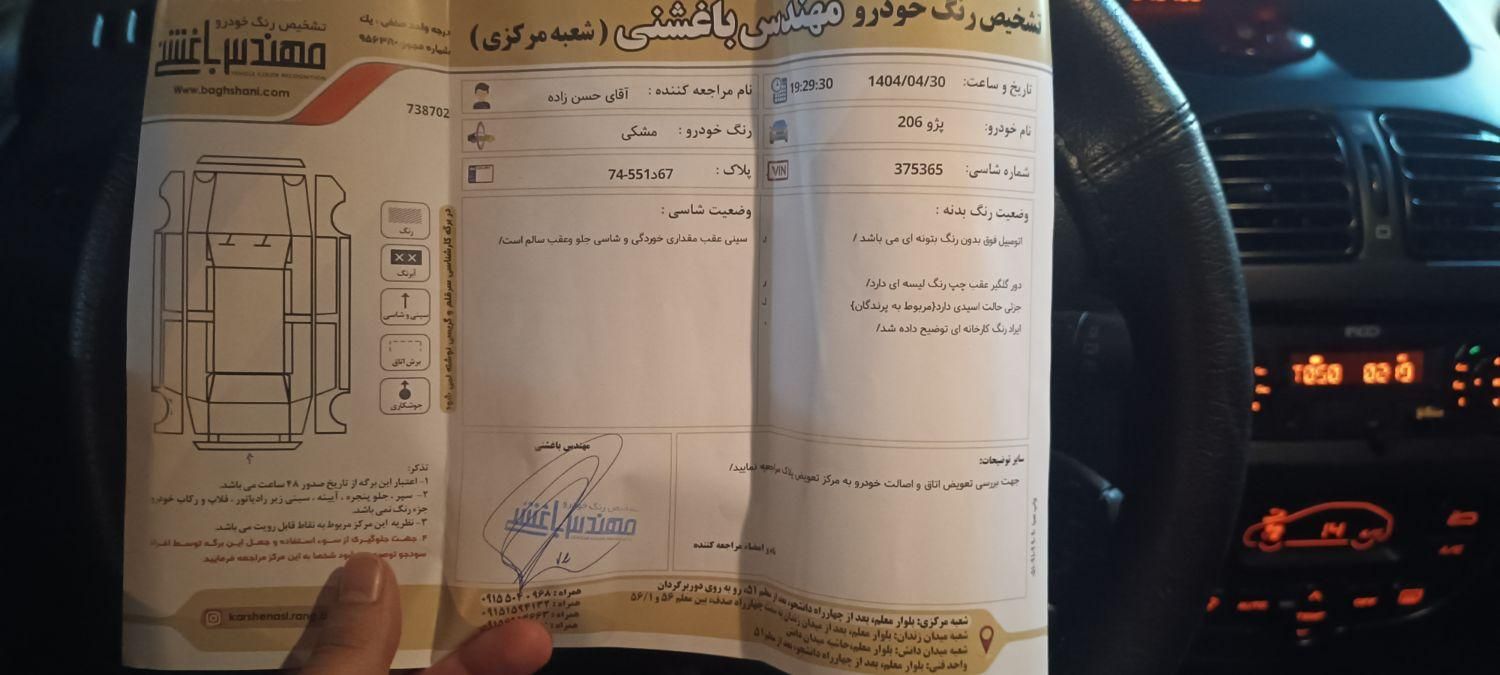 تشخیص رنگ خودرو مهندس باغشنی ( شعبه مرکزی )
درجه واحد صنفی : یک
تشخیص رنگ خودرو
مهندس باغشنی
VEHICLE COLOR RECOGNITION
www.baghshani.com
738702
تاریخ و ساعت: 1404/04/30 19:29:30
نام مراجعه کننده : آقای حسن زاده
نام خودرو: پژو 206
رنگ خودرو : مشکی
شماره شاسی: 375365
VIN
پلاک : 67د551-74
وضعیت رنگ بدنه :
اتومبیل فوق بدون رنگ بتونه ای می باشد /
دور گلگیر عقب چپ رنگ لیسه ای دارد/
جزئی حالت اسیدی دارد{مربوط به پرندگان}
ایراد رنگ کارخانه ای توضیح داده شد/
وضعیت شاسی :
سینی عقب مقداری خوردگی و شاسی جلو وعقب سالم است/
رنگ
آبرنگ
سینی و شاسی
برش اتاق
جوشکاری
در برگه کارشناسی سرقلم و گریسی نوشته نمی شود
سایر توضیحات:
جهت بررسی تعویض اتاق و اصالت خودرو به مرکز تعویض پلاک مراجعه نمایید/
امضاء مراجعه کننده
مهندس باغشنی
تشخیص رنگ خودرو
مهندس باغشنی
تذکر:
۱- اعتبار این برگه از تاریخ صدور ۴۸ ساعت می باشد.
۲- سپر ، جلو پنجره ، آیینه ، سینی زیر رادیاتور ، قلاپ و رکاب خودرو
جزء رنگ نمی باشد.
۳- نظریه این مرکز مربوط به نقاط قابل رویت می باشد.
۴ جهت جلوگیری از سوء استفاده و جعل این برگه توسط افراد
سودجو شخصا به این مرکز مراجعه فرمایید.
karshenasi.rang
همراه : ۰۹۱۵ ۵۰۴۰۹۶۸
همراه : ۰۹۱۵۱۵۹۴۱۳۲
همراه :
همراه :
شعبه مرکزی: بلوار معلم، بعد از چهارراه دانشجو، بعد از معلم ۵۱، رو به روی دوربرگردان
شعبه میدان زندان: بلوار معلم، بعد از میدان زندان به سمت چهارراه صدف، بین معلم ۵۶ و ۵۶/۱
شعبه میدان دانش: بلوار معلم، حاشیه میدان دانش
واحد فنی: بلوار معلم، بعد از چهارراه دانشجو، بعد از معلم ۵۱
14